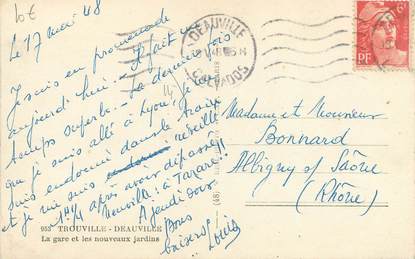 10€
Le 17 mai 48
Je suis en promenade
aujourd'hui. Il fait un
temps superbe. La dernière fois
que je suis allé à Lyon, je me
suis endormi dans le train
et je me suis endormi réveillé
1h1/4 après avoir dépassé
Neuville : à Tarare !!
A jeudi donc
Bons
baisers
Louis
DEAUVILLE
CALVADOS
RF
Madame et Monsieur
Bonnard
Albigny s/ Saône
(Rhône)
953 TROUVILLE - DEAUVILLE
La gare et les nouveaux jardins